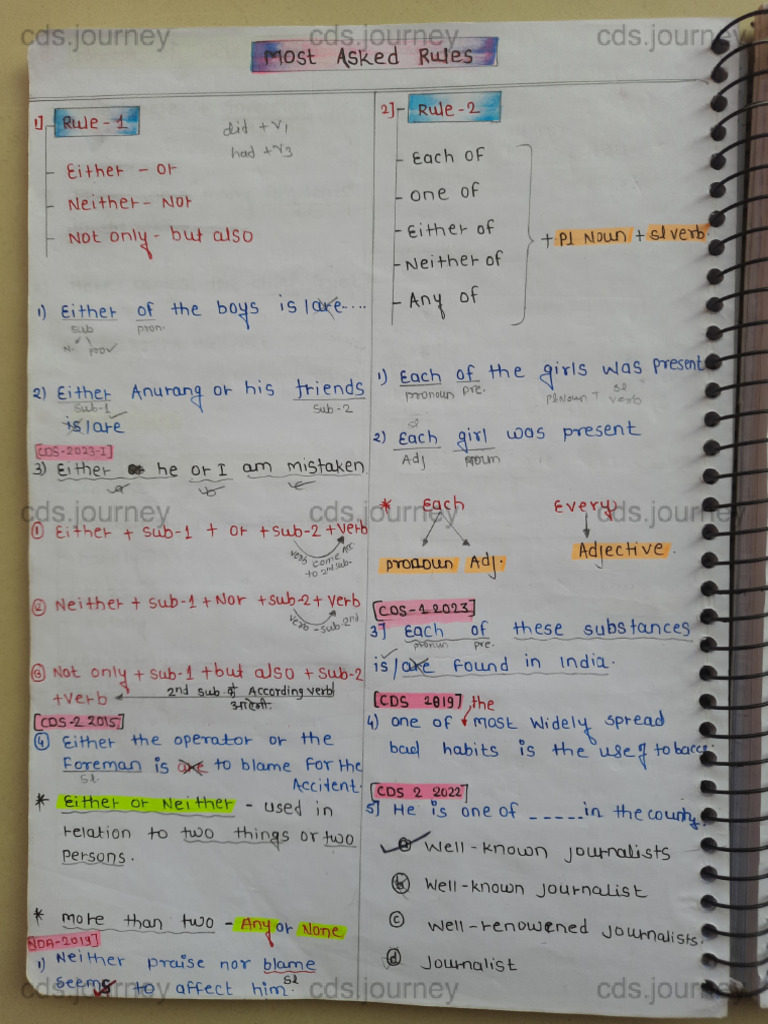 cds.journey cds.journey cds.journey
Most Asked Rules
1] Rule - 1
did + V1
had + V3
- Either - or
- Neither - Nor
- Not only - but also
1) Either of the boys is/are....
sub pron.
N. pro
2) Either Anurang or his friends
sub-1 sub-2
is/are
[CDS-2023-I]
3) Either or he or I am mistaken.
a b c
cds.journey cds.journey cds.journey
① Either + sub-1 + or + sub-2 + verb
verb come Acc
to 2nd sub.
② Neither + sub-1 + Nor + sub-2 + verb
verb - sub-2nd
③ Not only + sub-1 + but also + sub-2
+ verb
2nd sub के According verb
आएगी.
[CDS-2 2015]
④ Either the operator or the
Foreman is are to blame for the
sl.
Accident.
* Either or Neither - used in
relation to two things or two
persons.
* more than two - Any or None
[NDA-2019]
1) Neither praise nor blame
sl
seems to affect him.
2] - Rule - 2
- Each of
- one of
- Either of
- Neither of
- Any of
+ Pl Noun + sl verb.
1) Each of the girls was present
pronoun pre. Pl Noun + sl verb
sl
2) Each girl was present
Adj noun
* Each Every
pronoun Adj. Adjective.
[CDS-1 2023]
3] Each of these substances
pronoun pre.
is/are found in India.
[CDS 2019] the
4) one of most widely spread
bad habits is the use of tobacco.
[CDS 2 2022]
5] He is one of _____ in the county.
ⓐ Well-known journalists
ⓑ Well-known journalist
ⓒ well-renowened journalists.
ⓓ Journalist
cds.journey cds.journey cds.journey